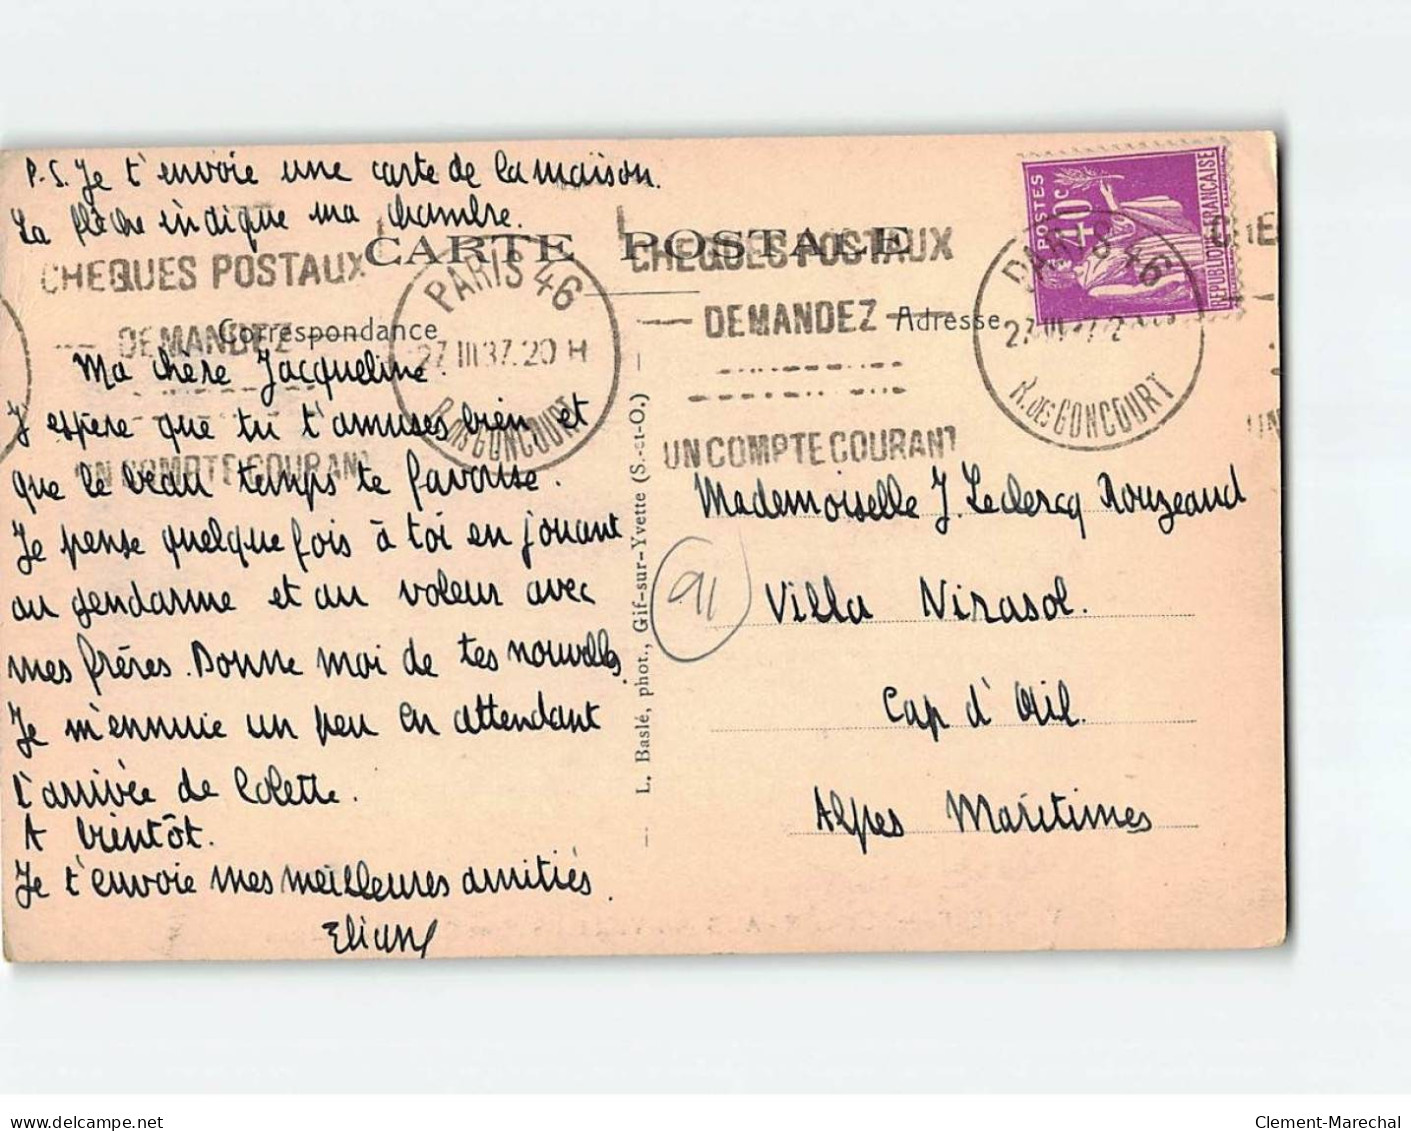 P.S. Je t'envoie une carte de la maison.
La flèche indique ma chambre.
CARTE POSTALE
CHEQUES POSTAUX
DEMANDEZ
UN COMPTE COURANT
PARIS 46
27 III 37. 20 H
R. DES GONCOURT
CHEQUES POSTAUX
DEMANDEZ
UN COMPTE COURANT
PARIS 46
R. DES GONCOURT
POSTES
40c
REPUBLIQUE FRANÇAISE
Correspondance
Adresse
Ma chère Jacqueline
J'espère que tu t'amuses bien et
que le beau temps te favorise.
Je pense quelque fois à toi en jouant
au gendarme et au voleur avec
mes frères. Donne moi de tes nouvelles.
Je m'ennuie un peu en attendant
l'arrivée de Colette.
A bientôt.
Je t'envoie mes meilleures amitiés.
Eliane
L. Baslé, phot., Gif-sur-Yvette (S.-et-O.)
91
Mademoiselle J. Leclercq Rouzeaud
Villa Nirasol.
Cap d'Ail.
Alpes Maritimes
delcampe.net
Clement-Marechal